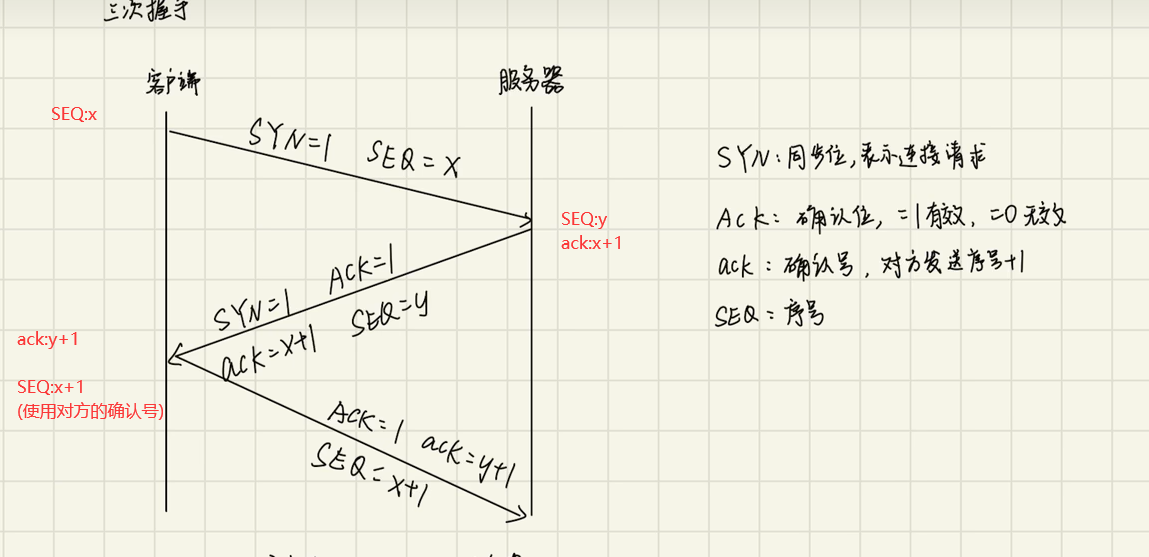 三次握手
客户端
服务器
SEQ:x
SYN=1 SEQ=x
SEQ:y
ack:x+1
SYN=1 ACK=1
ack=x+1 SEQ=y
ack:y+1
SEQ:x+1
(使用对方的确认号)
ACK=1 ack=y+1
SEQ=x+1
SYN:同步位,表示连接请求
ACK: 确认位, =1有效, =0无效
ack: 确认号, 对方发送序号+1
SEQ: 序号